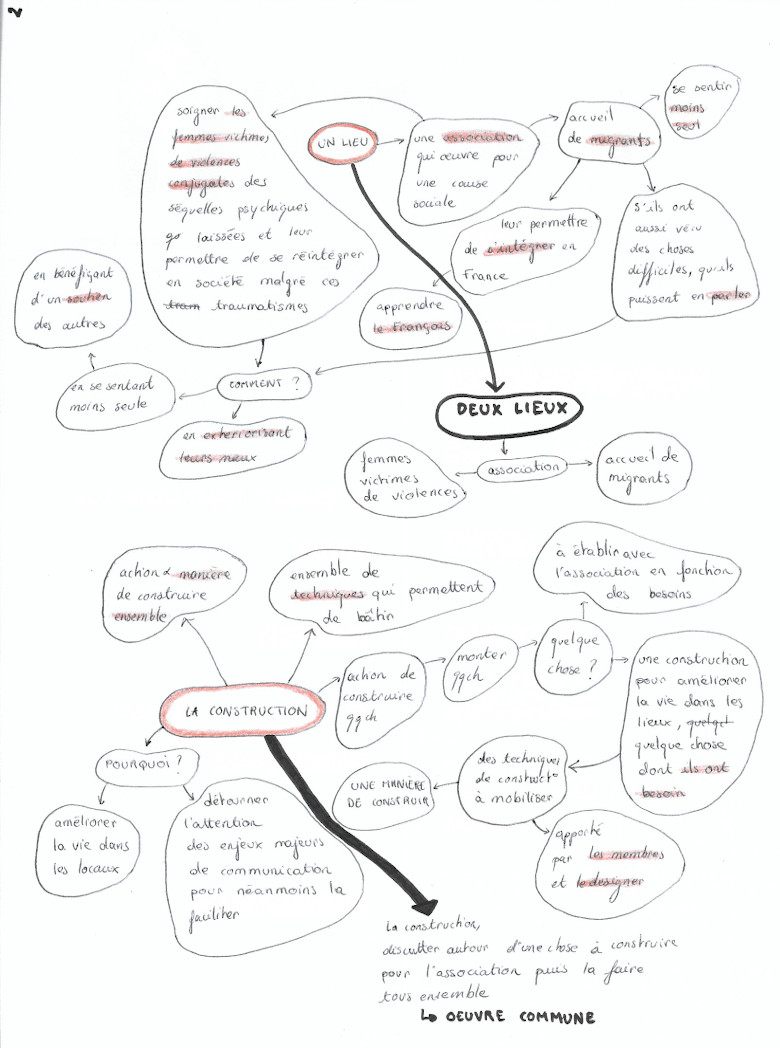 2
UN LIEU
une association
qui œuvre pour
une cause
sociale
soigner les
femmes victimes
de violences
conjugales des
séquelles psychiques
qo laissées et leur
permettre de se réintégrer
en société malgré ces
tram traumatismes
accueil
de migrants
se sentir
moins
seul
leur permettre
de s'intégrer en
France
apprendre
le Français
s'ils ont
aussi vécu
des choses
difficiles, qu'ils
puissent en parler
COMMENT ?
en se sentant
moins seule
en bénéfiçant
d'un soutien
des autres
en exteriorisant
leurs maux
DEUX LIEUX
association
femmes
victimes
de violences
accueil de
migrants
LA CONSTRUCTION
action & manière
de construire
ensemble
ensemble de
techniques qui permettent
de bâtir
action de
construire
qqch
monter
qqch
quelque
chose ?
à établir avec
l'association en fonction
des besoins
une construction
pour améliorer
la vie dans les
lieux, quelqu
quelque chose
dont ils ont
besoin
des techniques
de construct°
à mobiliser
UNE MANIÈRE
DE CONSTRUIR
apporté
par les membres
et le designer
POURQUOI ?
améliorer
la vie dans
les locaux
détourner
l'attention
des enjeux majeurs
de communication
pour néanmoins la
faciliter
La construction,
discutter autour d'une chose à construire
pour l'association puis la faire
tous ensemble
↳ OEUVRE COMMUNE